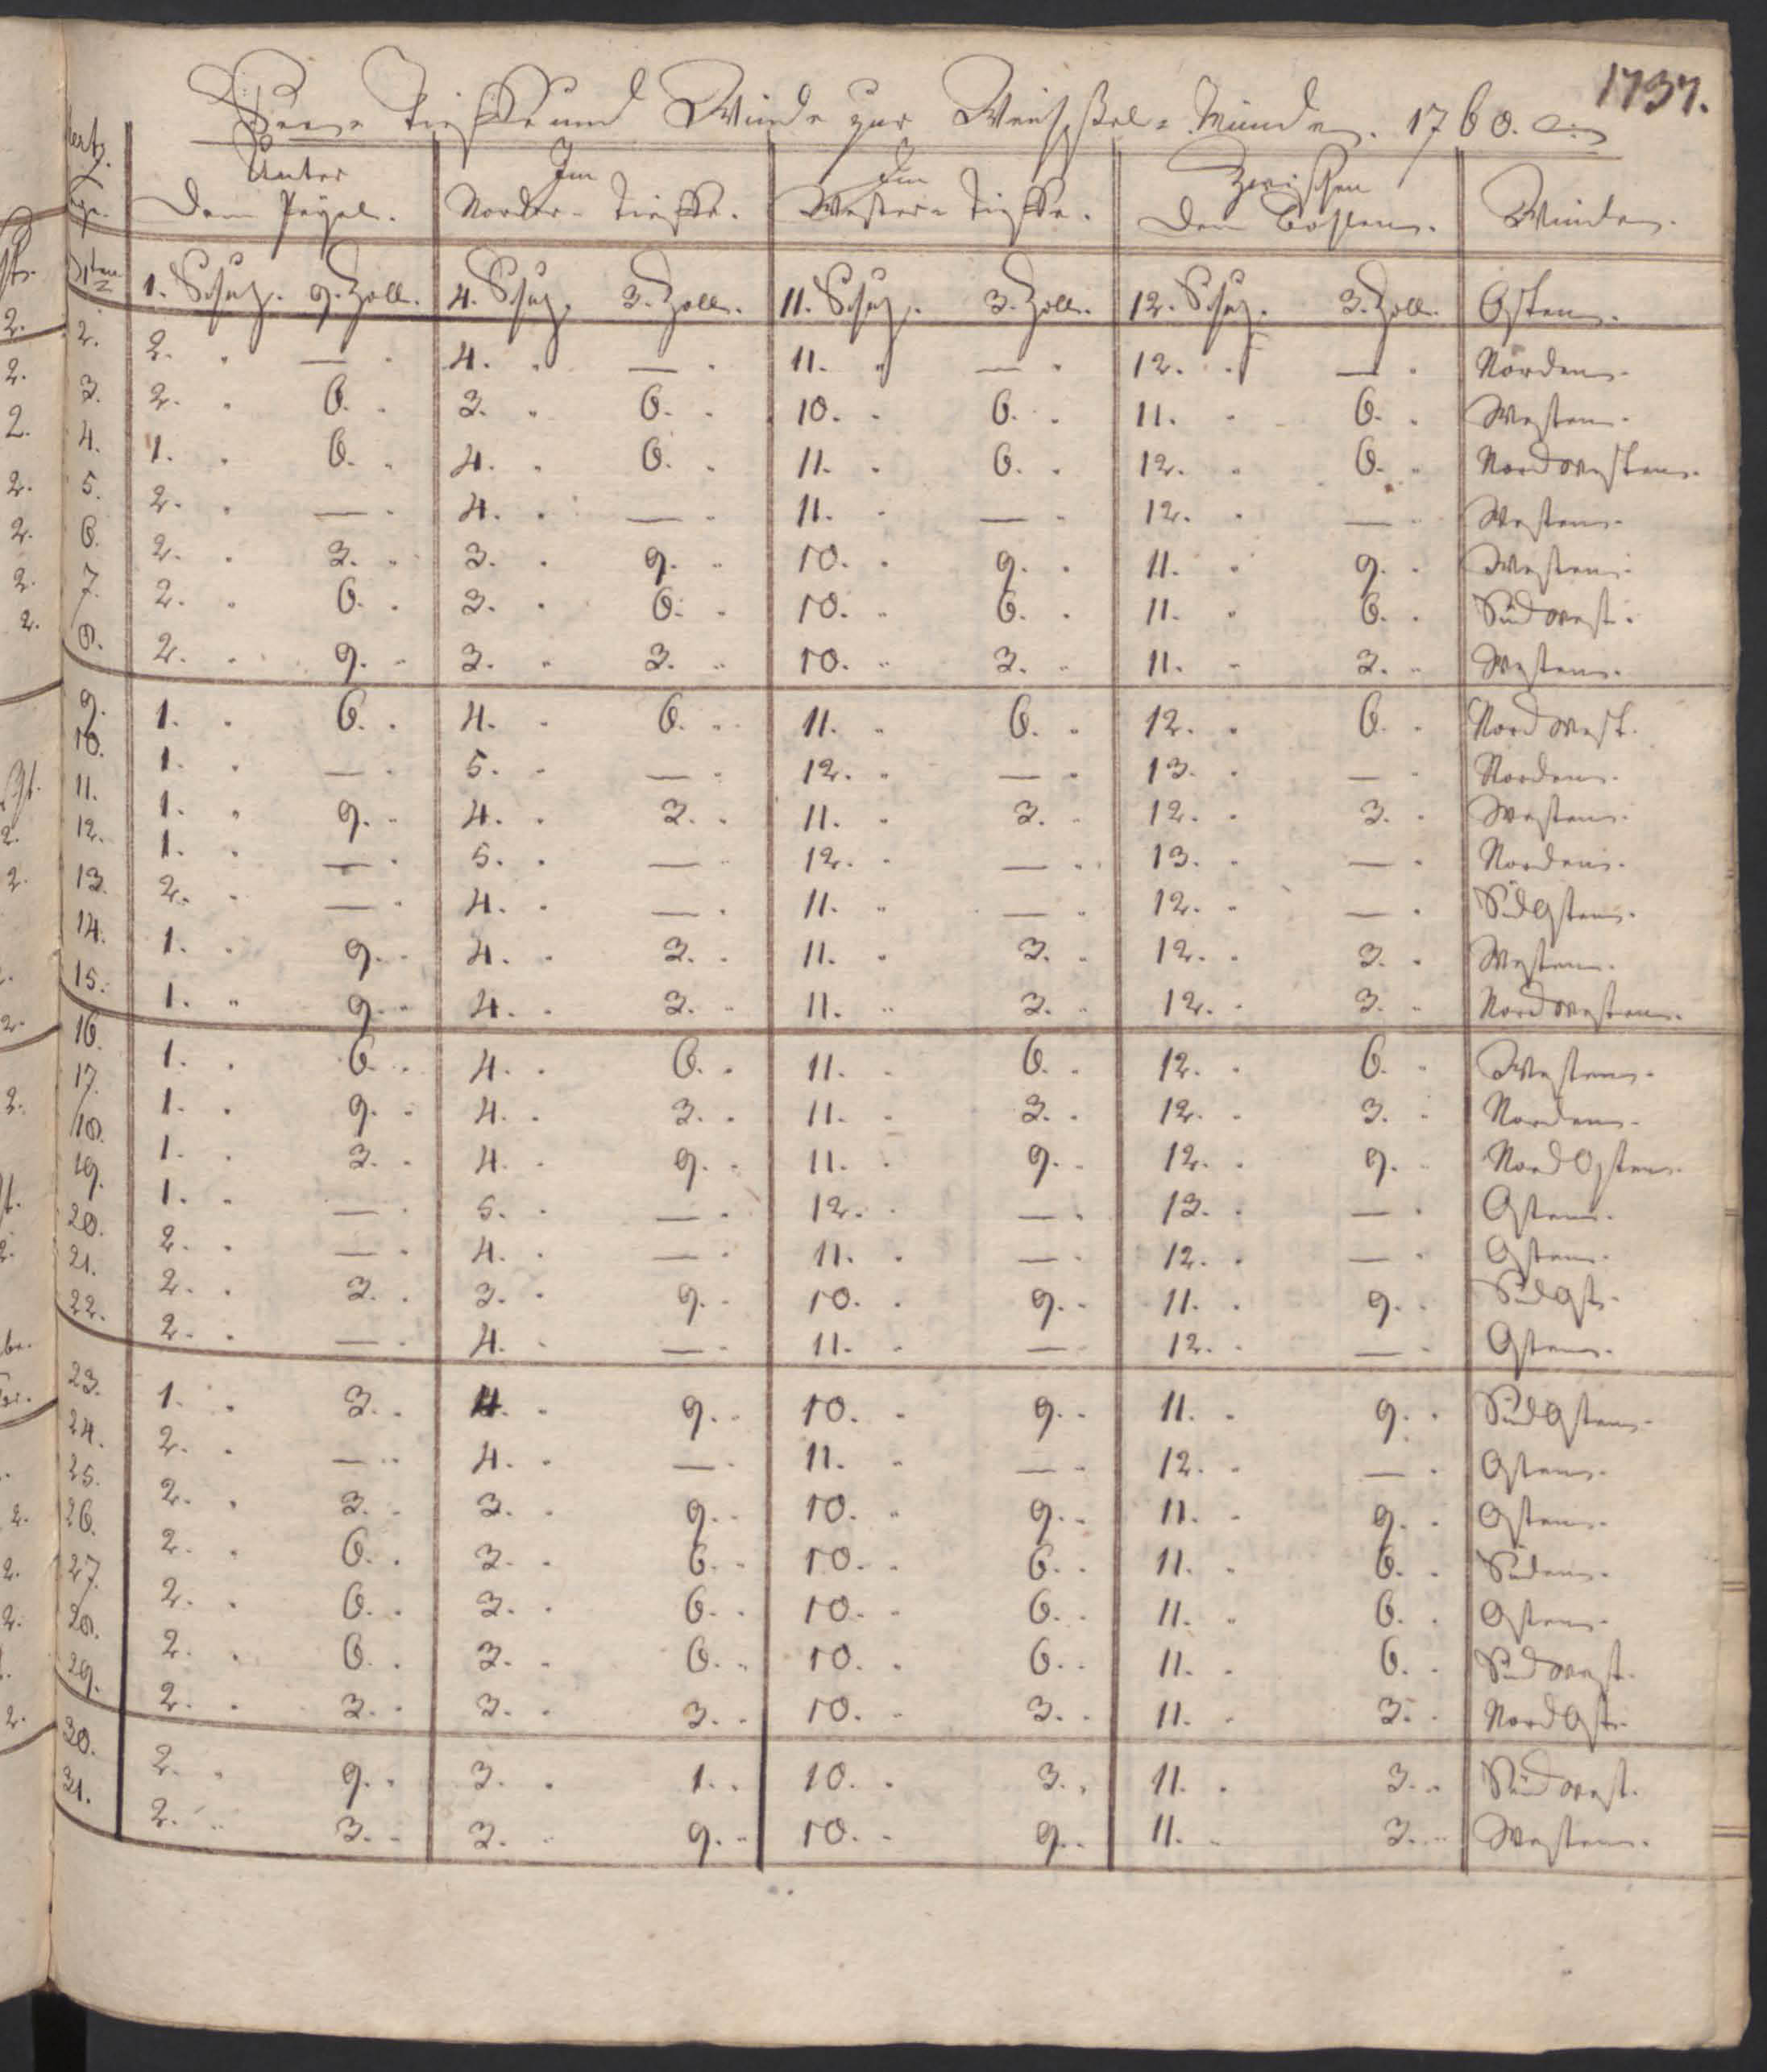 1737.
See- Tieffe und Winde zur Weichßel-Münde. 1760.
Unter dem Pegel. Im Norder-Tieffe. Im Wester-Tieffe. Zwischen den Bohlen. Winde.
1ten 1. Schuh. 9. Zoll. 4. Schuh. 3. Zoll. 11. Schuh. 3. Zoll. 12. Schuh. 3. Zoll. Osten.
2. 2. — 4. — 11. — 12. — Norden.
3. 2. 6. 3. 6. 10. 6. 11. 6. Westen.
4. 1. 6. 4. 6. 11. 6. 12. 6. Nordwesten.
5. 2. — 4. — 11. — 12. — Westen.
6. 2. 3. 3. 9. 10. 9. 11. 9. Westen.
7. 2. 6. 3. 6. 10. 6. 11. 6. Südwest.
8. 2. 9. 3. 3. 10. 3. 11. 3. Westen.
9. 1. 6. 4. 6. 11. 6. 12. 6. Nordwest.
10. 1. — 5. — 12. — 13. — Norden.
11. 1. 9. 4. 3. 11. 3. 12. 3. Westen.
12. 1. — 5. — 12. — 13. — Norden.
13. 2. — 4. — 11. — 12. — SüdOsten.
14. 1. 9. 4. 3. 11. 3. 12. 3. Westen.
15. 1. 9. 4. 3. 11. 3. 12. 3. Nordwesten.
16. 1. 6. 4. 6. 11. 6. 12. 6. Westen.
17. 1. 9. 4. 3. 11. 3. 12. 3. Norden.
18. 1. 3. 4. 9. 11. 9. 12. 9. NordOsten.
19. 1. — 5. — 12. — 13. — Osten.
20. 2. — 4. — 11. — 12. — Osten.
21. 2. 3. 3. 9. 10. 9. 11. 9. SüdOst.
22. 2. — 4. — 11. — 12. — Osten.
23. 1. 3. 4. 9. 10. 9. 11. 9. SüdOsten.
24. 2. — 4. — 11. — 12. — Osten.
25. 2. 3. 3. 9. 10. 9. 11. 9. Osten.
26. 2. 6. 3. 6. 10. 6. 11. 6. Süden.
27. 2. 6. 3. 6. 10. 6. 11. 6. Osten.
28. 2. 6. 3. 6. 10. 6. 11. 6. Südwest.
29. 2. 3. 3. 3. 10. 3. 11. 3. NordOst.
30. 2. 9. 3. 1. 10. 3. 11. 3. Südwest.
31. 2. 3. 3. 9. 10. 9. 11. 3. Westen.